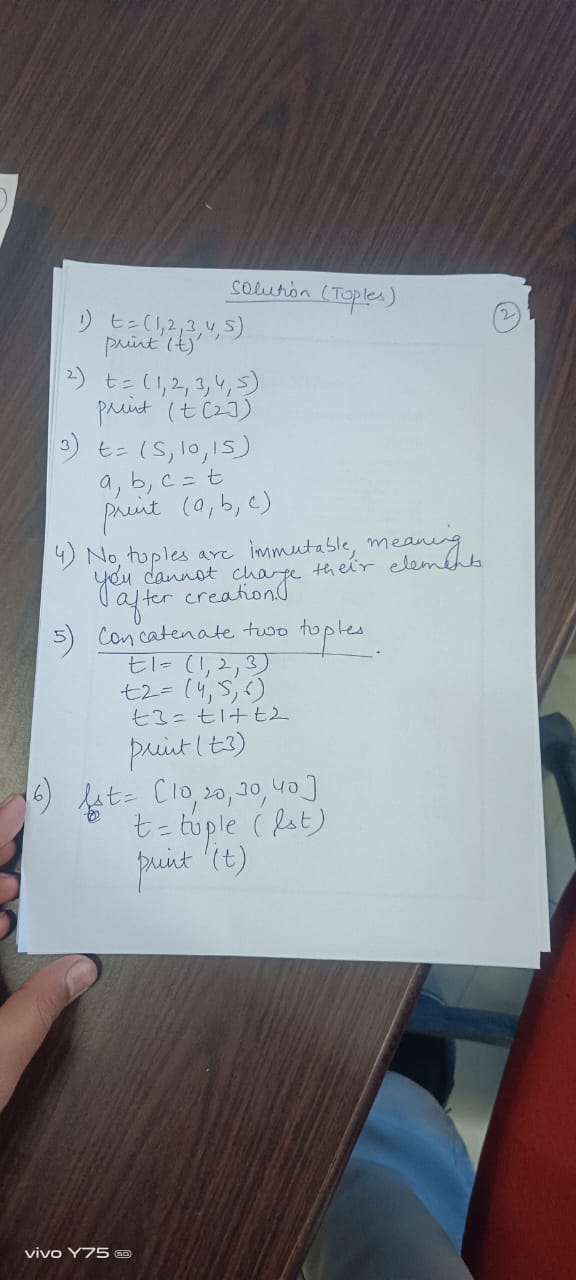 Solution (Toples)
2
1) t=(1,2,3,4,5)
print (t)
2) t=(1,2,3,4,5)
print (t[2])
3) t=(5,10,15)
a, b, c = t
print (a, b, c)
4) No, tuples are immutable, meaning
you cannot change their elements
after creation.
5) Concatenate two toples.
t1= (1, 2, 3)
t2= (4, 5, 6)
t3= t1+t2
print(t3)
6) lst= [10,20,30,40]
t=tuple (lst)
print (t)
vivo Y75 5G